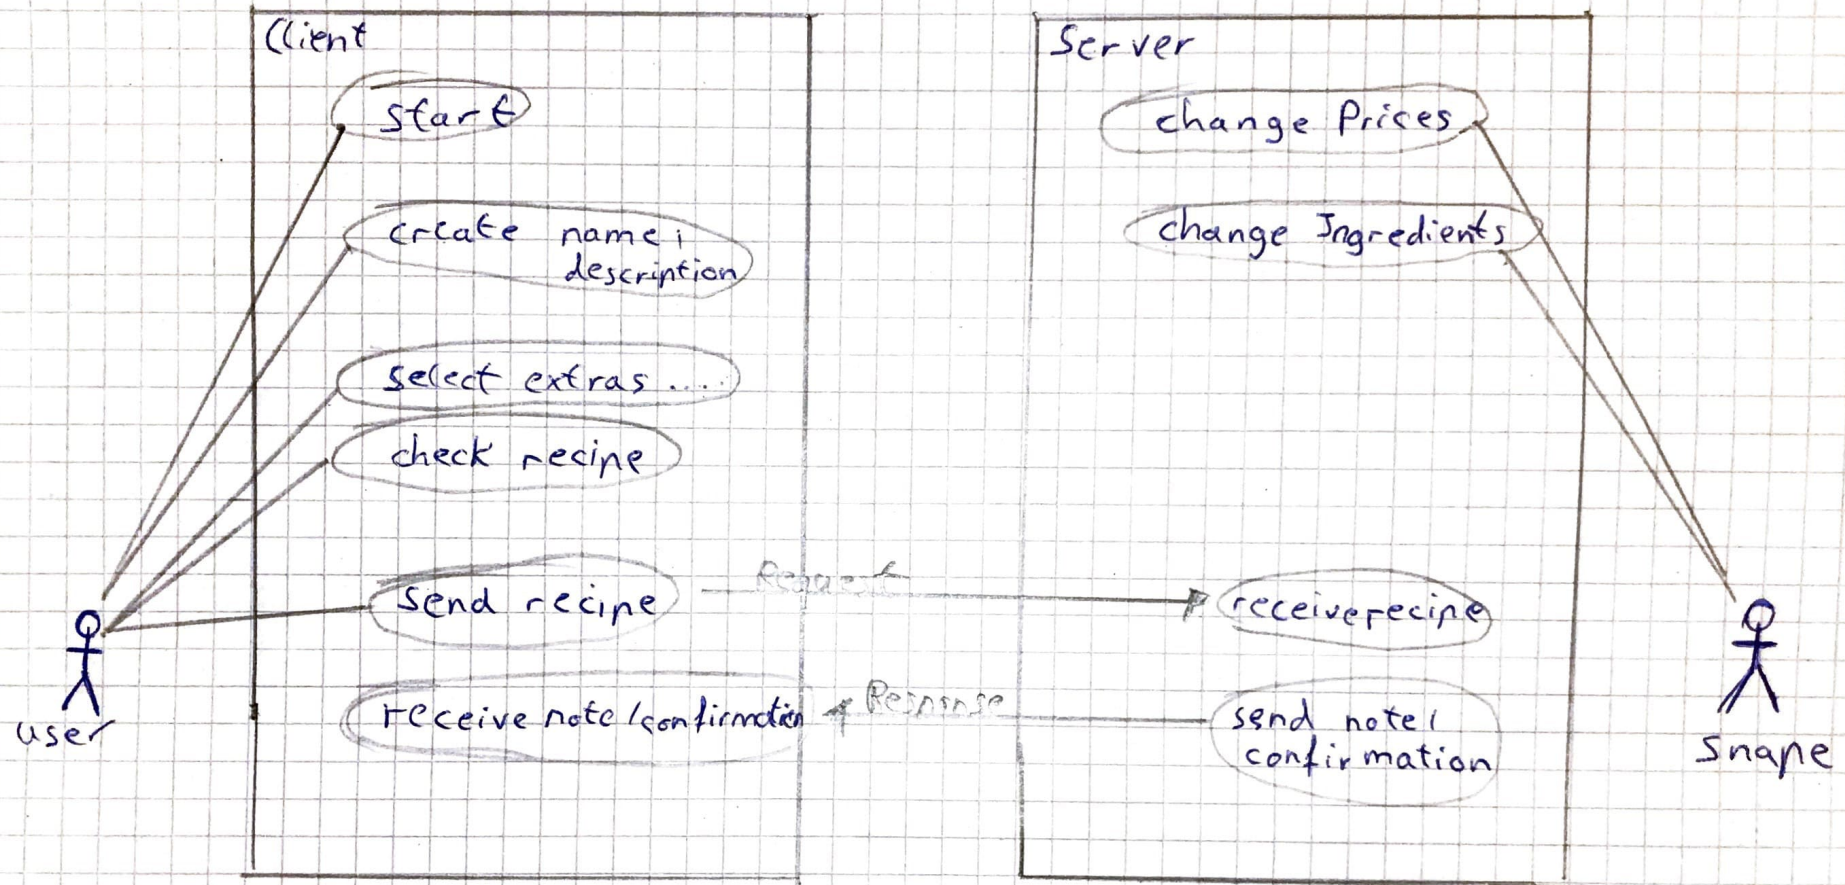 Client
start
create name,
description
select extras ....
check recipe
send recipe
receive note/confirmation
user
Request
Response
Server
change Prices
change Ingredients
receive recipe
send note/
confirmation
Snape